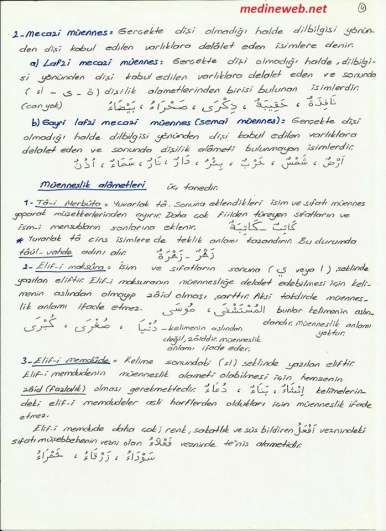 medineweb.net
4
2-Mecazi müennes: Gerçekte dişi olmadığı halde dilbilgisi yönün-
den dişi kabul edilen varlıklara delâlet eden isimlere denir.
a) Lafzi mecazi müennes: Gerçekte dişi olmadığı halde, dilbilgi-
si yönünden dişi kabul edilen varlıklara delalet eden ve sonunda
(ة - ى - اء) dişilik alametlerinden birisi bulunan isimlerdir.
(can yok) نَافِذَةٌ ، حَقِيبَةٌ ، ذِكْرَى ، صَحْرَاءُ ، بَيْضَاءُ
b) Gayri lafzi mecazi müennes (semai müennes): Gerçekte dişi
olmadığı halde dilbilgisi yönünden dişi kabul edilen varlıklara
delalet eden ve sonunda dişilik alâmeti bulunmayan isimlerdir.
أَرْضٌ ، شَمْسٌ ، حَرْبٌ ، بِئْرٌ ، دَارٌ ، نَارٌ ، سَمَاءٌ ، أُذُنٌ
Müenneslik alâmetleri üç tanedir.
1- Tâ-i Merbûta: Yuvarlak tâ. Sonuna eklendikleri isim ve sıfatı müennes
yaparak müzekkerlerinden ayırır. Daha çok fiilden türeyen sıfatların ve
ism-i mensubların sonlarına eklenir. كَاتِبٌ - كَاتِبَةٌ
* Yuvarlak tâ cins isimlere de teklik anlamı kazandırır. Bu durumda
tâül-vahde adını alır. زَهْرٌ - زَهْرَةٌ
2- Elif-i maksûra: İsim ve sıfatların sonuna (ى veya ا) şeklinde
yazılan eliftir. Elif-i maksuranın müennesliğe delalet edebilmesi için keli-
menin aslından olmayıp zâid olması şarttır. Aksi takdirde müennes-
lik anlamı ifade etmez. اَلْمُسْتَشْفَى ، مُوسَى bunlar kelimenin aslın-
dandır, müenneslik anlamı
yoktur.
دُنْيَا ، صُغْرَى ، كُبْرَى - kelimenin aslından
değil, zâiddir. müenneslik
anlamı ifade eder.
3- Elif-i memdûde: Kelime sonundaki (اء) şeklinde yazılan eliftir.
Elif-i memdudenin müenneslik alameti olabilmesi için hemzenin
zâid (fazlalık) olması gerekmektedir. إِنْشَاءٌ ، بِنَاءٌ ، دُعَاءٌ kelimelerin-
deki elif-i memdudeler asli harflerden oldukları için müenneslik ifade
etmez.
Elif-i memdude daha çok; renk, sakatlık ve süs bildiren أَفْعَلُ veznindeki
sıfatı müşebbehenin vezni olan فَعْلَاءُ vezninde te'nis alametidir.
سَوْدَاءُ ، زَرْقَاءُ ، حَمْرَاءُ